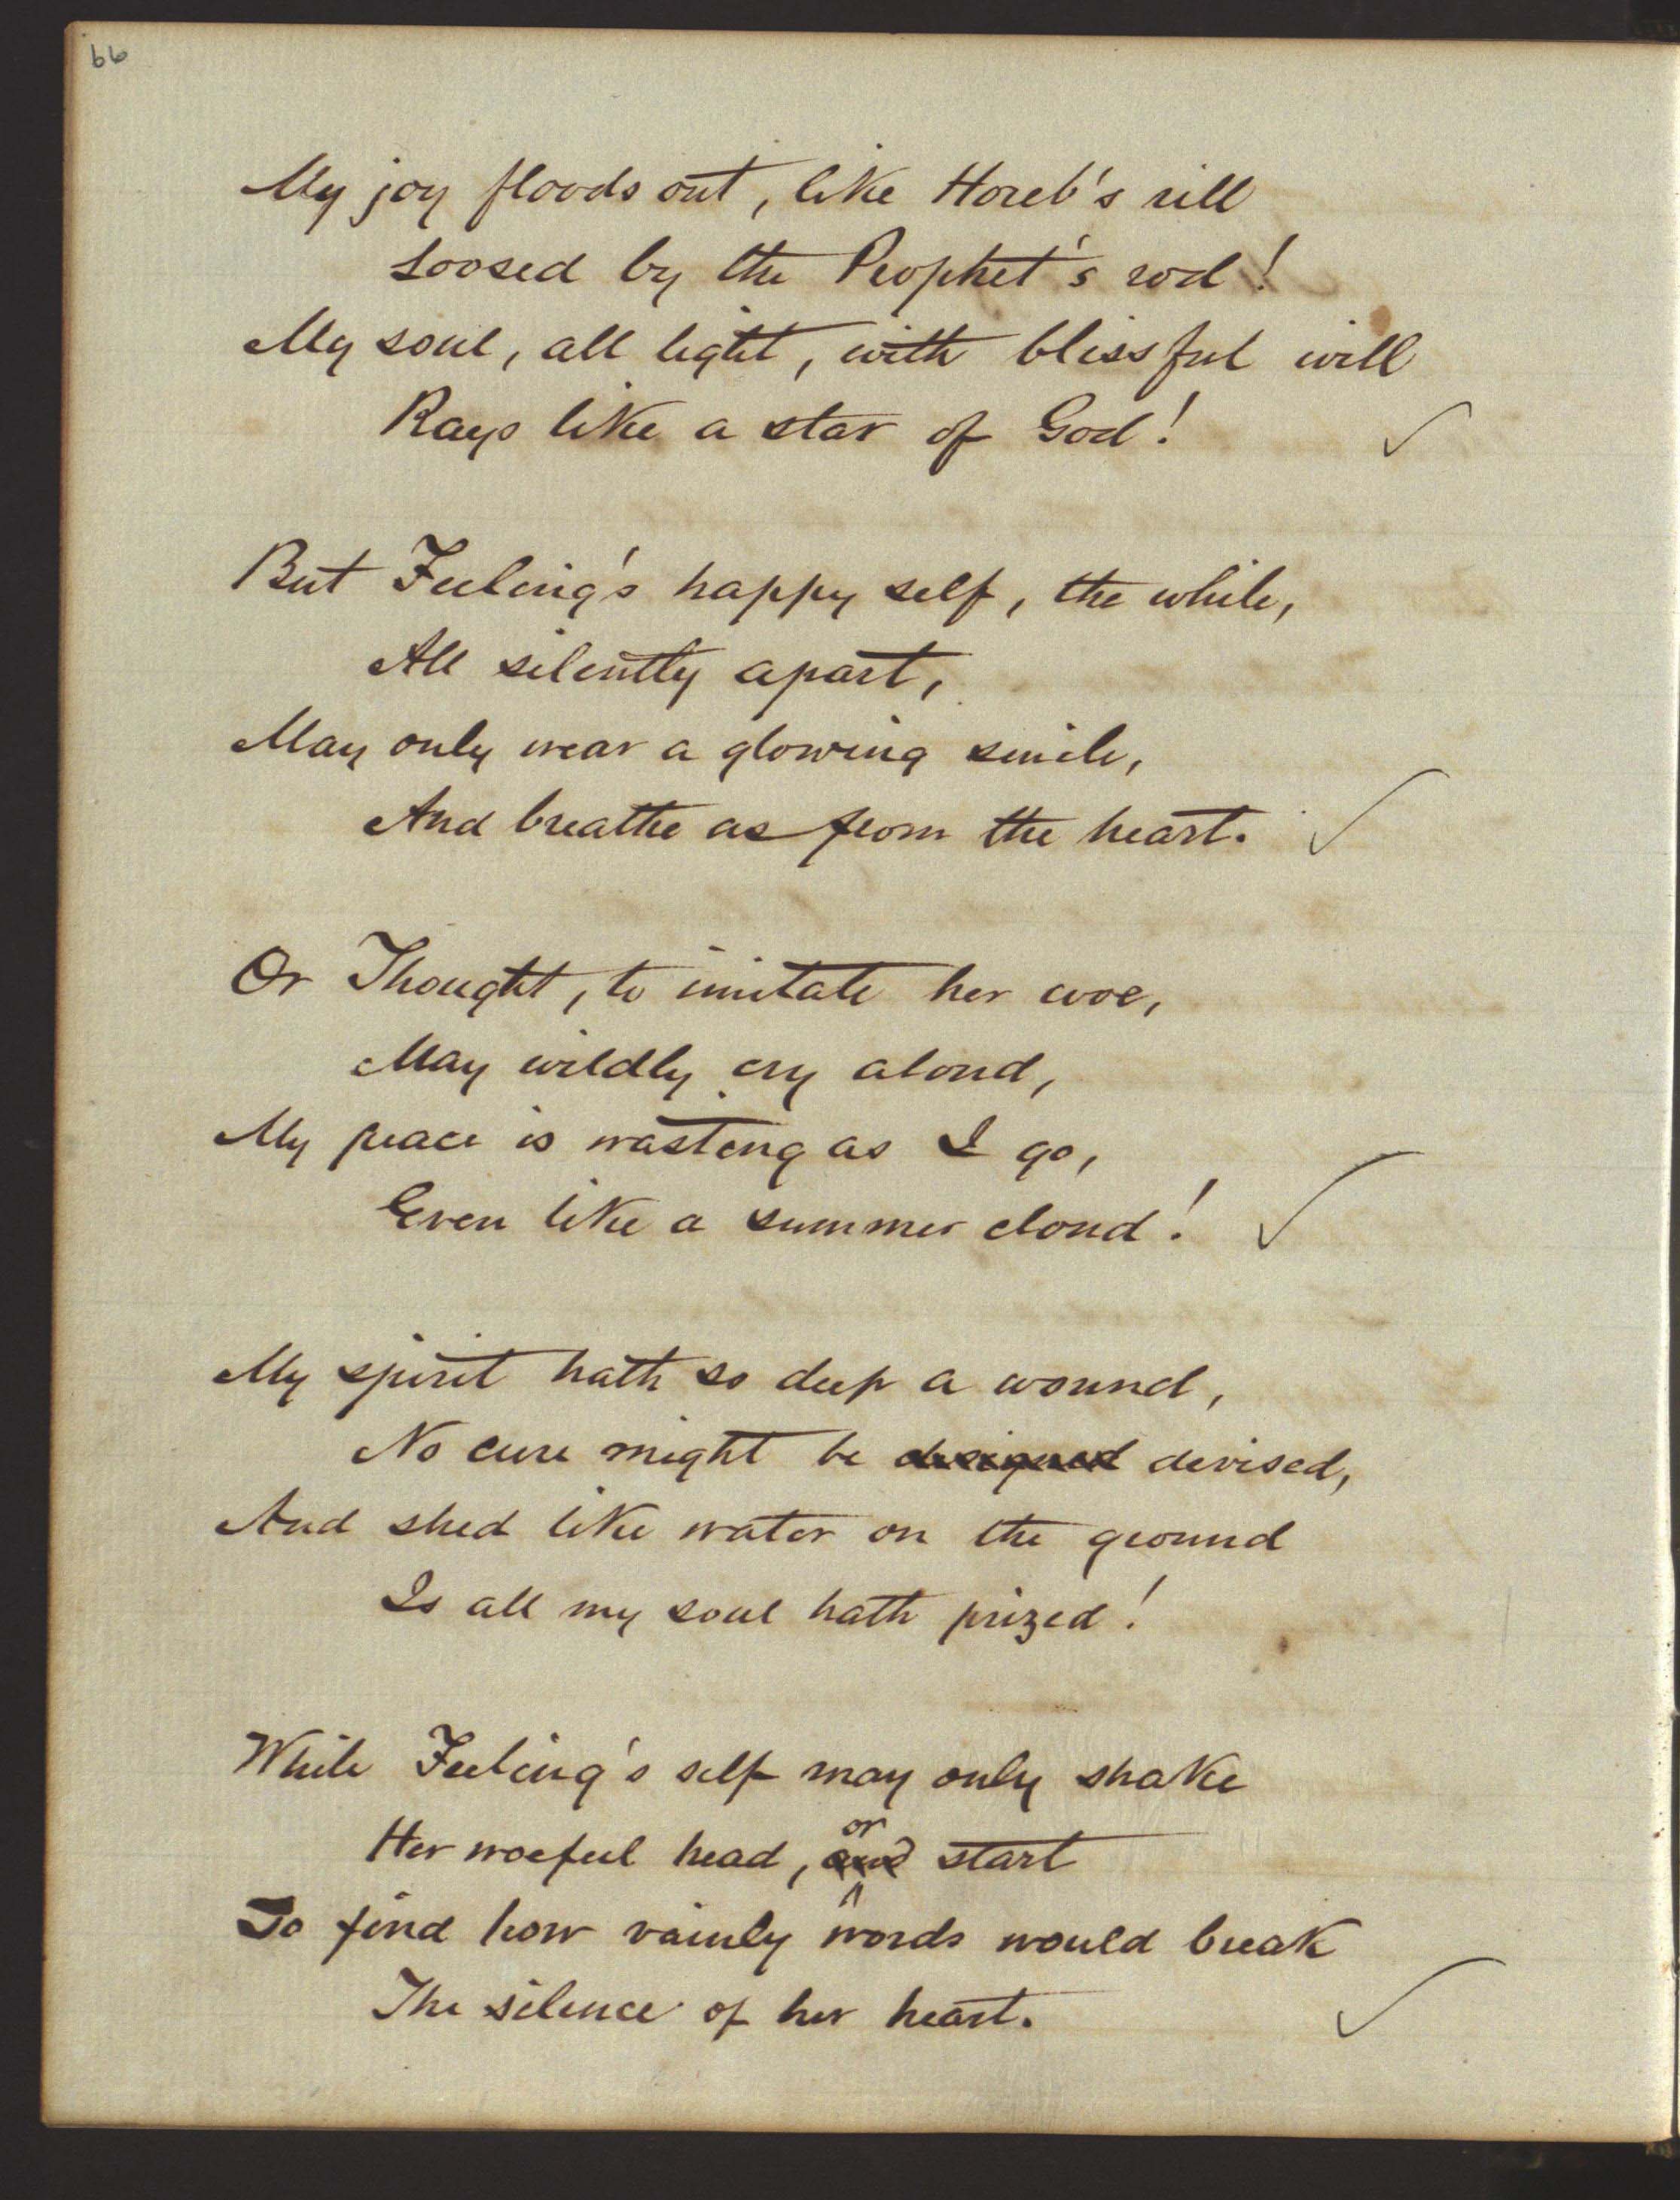 66
My joy floods out, like Horeb's rill
Loosed by the Prophet's rod!
My soul, all light, with blissful will
Rays like a star of God!
But Feeling's happy self, the while,
All silently apart,
May only wear a glowing smile,
And breathe as from the heart.
Or Thought, to imitate her woe,
May wildly cry aloud,
My peace is wasting as I go,
Even like a summer cloud!
My spirit hath so deep a wound,
No cure might be designed devised,
And shed like water on the ground
Is all my soul hath prized!
While Feeling's self may only shake
or
Her woeful head, and start
To find how vainly words would break
The silence of her heart.